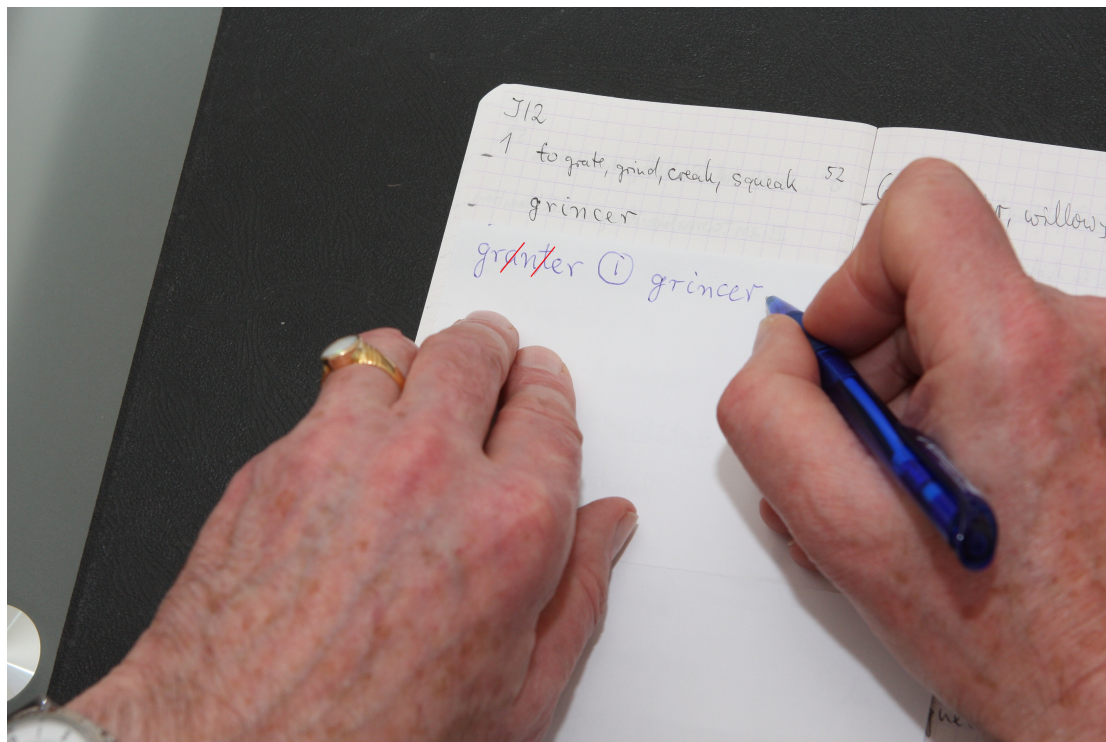 J12
1 to grate, grind, creak, squeak 52
grincer
granter i grincer
willow